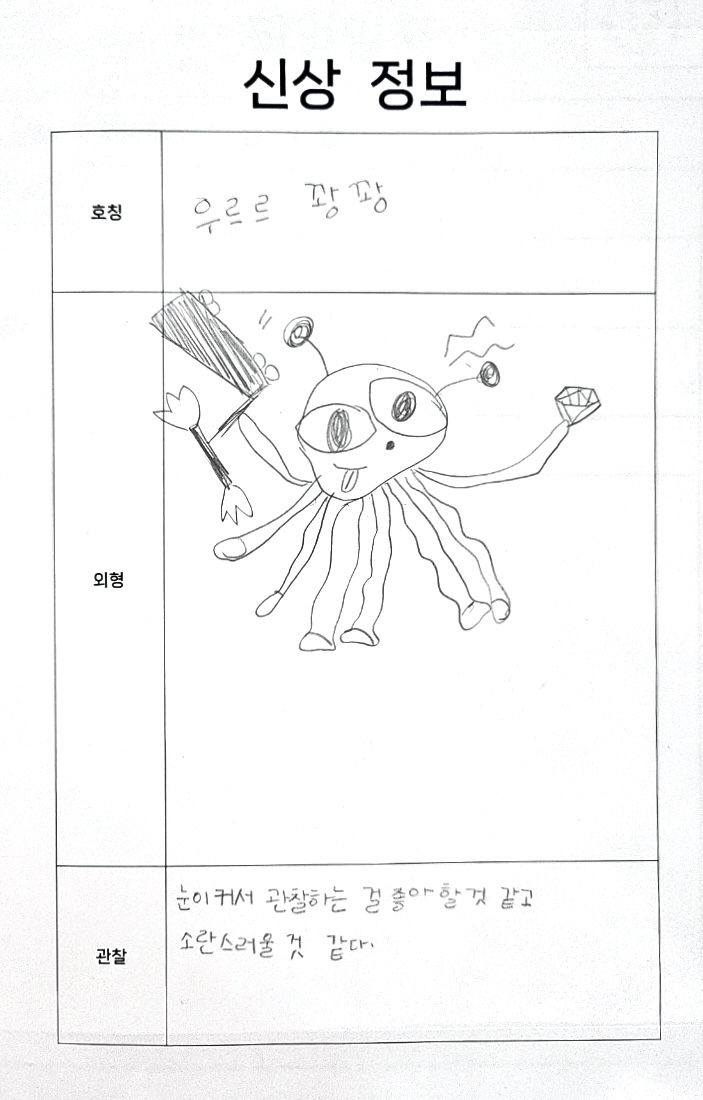 신상 정보
호칭
우르르 쾅쾅
외형
관찰
눈이 커서 관찰하는 걸 좋아할 것 같고
소란스러울 것 같다.